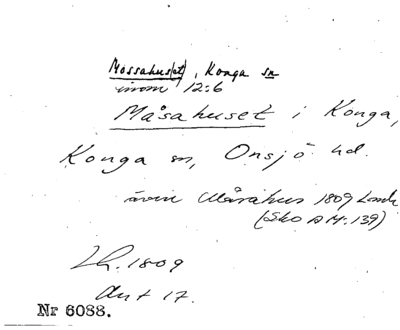 Mossahus(et), Konga sn
inom 12:6
Måsahuset i Konga,
Konga sn, Onsjö hd.
även Måsahus 1809 Lantm
(Sko A M: 139)
Lh. 1809
Ant 17.
Nr 6088.